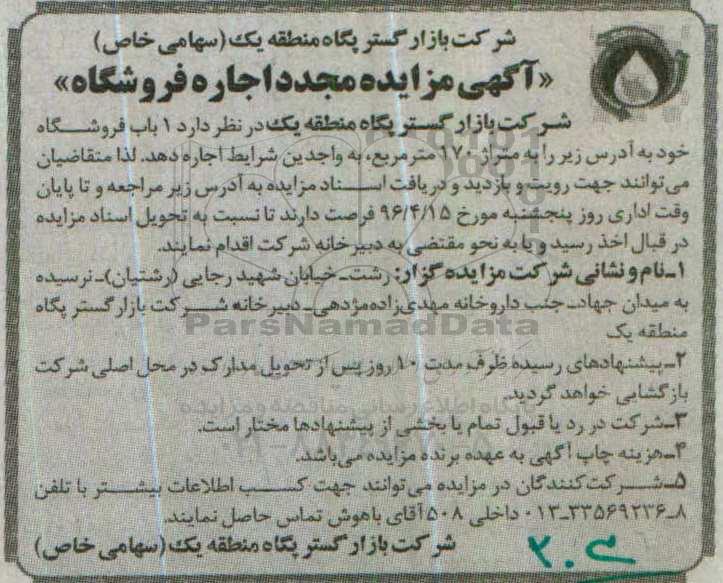 شرکت بازار گستر پگاه منطقه یک (سهامی خاص)
«آگهی مزایده مجدد اجاره فروشگاه»
شرکت بازار گستر پگاه منطقه یک در نظر دارد ۱ باب فروشگاه
خود به آدرس زیر را به متراژ ۱۷۰ مترمربع، به واجدین شرایط اجاره دهد. لذا متقاضیان
می‌توانند جهت رویت و بازدید و دریافت اسناد مزایده به آدرس زیر مراجعه و تا پایان
وقت اداری روز پنجشنبه مورخ ۹۶/۴/۱۵ فرصت دارند تا نسبت به تحویل اسناد مزایده
در قبال اخذ رسید و یا به نحو مقتضی به دبیرخانه شرکت اقدام نمایند.
۱ـ نام و نشانی شرکت مزایده گزار: رشت ـ خیابان شهید رجایی (رشتیان) ـ نرسیده
به میدان جهاد ـ جنب داروخانه مهدی‌زاده مژدهی ـ دبیرخانه شرکت بازار گستر پگاه
منطقه یک
۲ـ پیشنهادهای رسیده ظرف مدت ۱۰ روز پس از تحویل مدارک در محل اصلی شرکت
بازگشایی خواهد گردید.
۳ـ شرکت در رد یا قبول تمام یا بخشی از پیشنهادها مختار است.
۴ـ هزینه چاپ آگهی به عهده برنده مزایده می‌باشد.
۵ـ شرکت‌کنندگان در مزایده می‌توانند جهت کسب اطلاعات بیشتر با تلفن
۸ـ۳۳۵۶۹۲۳۶ـ۰۱۳ داخلی ۵۰۸ آقای باهوش تماس حاصل نمایند.
شرکت بازار گستر پگاه منطقه یک (سهامی خاص)
ParsNamadData
پایگاه اطلاع رسانی مناقصه و مزایده